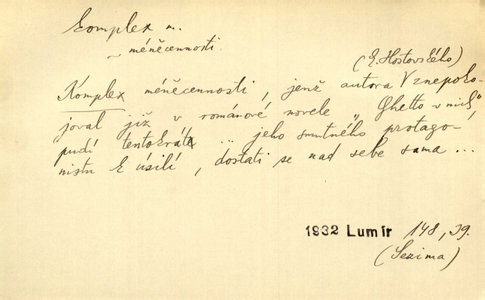 Komplex m.
~ méněcennosti.
(E. Hostovského)
Komplex méněcennosti, jenž autora znepoko-
joval již v románové novele „Ghetto v nich“
pudí tentokráte ... jeho smutného protago-
nistu k úsilí, dostati se nad sebe sama ...
1932 Lumír 148, 59.
(Sezima)